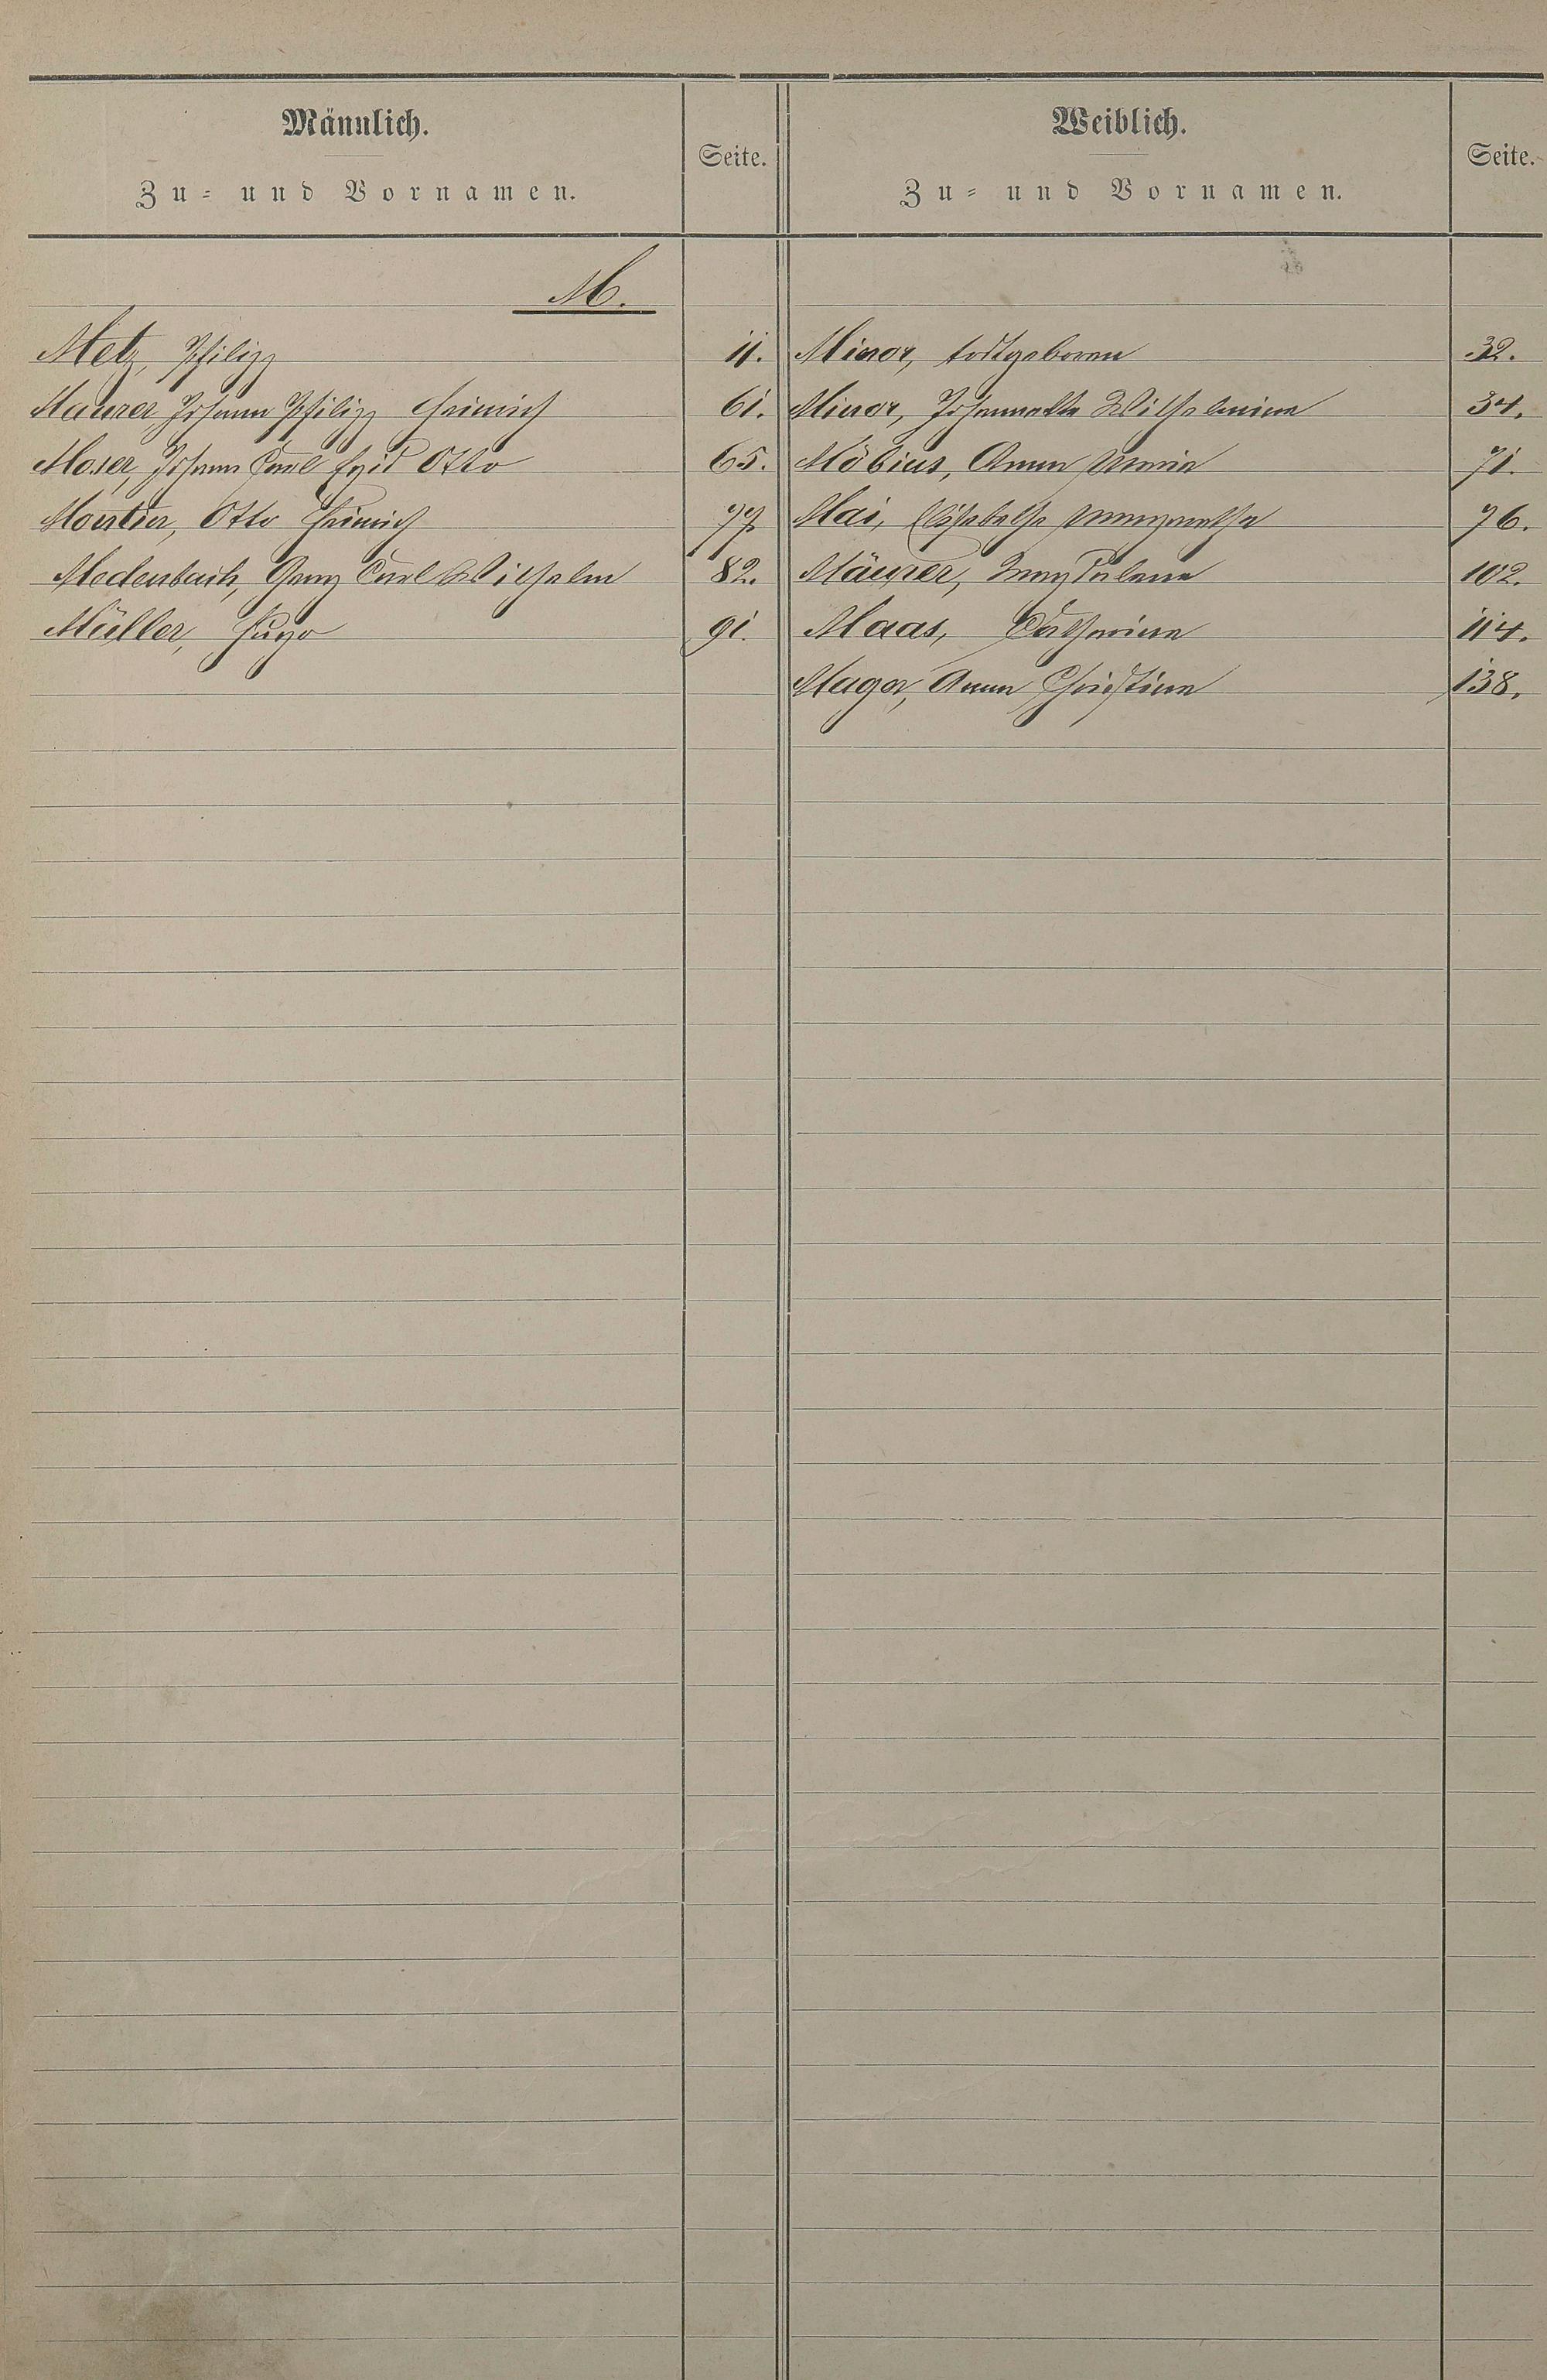 Männlich.
Zu- und Vornamen.
Seite.
Weiblich.
Zu- und Vornamen.
Seite.
M.
Metz, Philipp 11.
Maurer, Johann Philipp Heinrich 61.
Moser, Johann Carl Egid Otto 65.
Otto Heinrich 77.
Medenbach, Georg Carl Wilhelm 82.
Müller, Hugo 91.
Minor, todtgeboren 32.
Minor, Johannette Wilhelmine 34.
Möbius, Anna Maria 71.
Mai, Elisabethe Margarethe 76.
Mäurer, Magdalena 102.
Maas, Catharina 114.
Mager, Anna Christina 138.